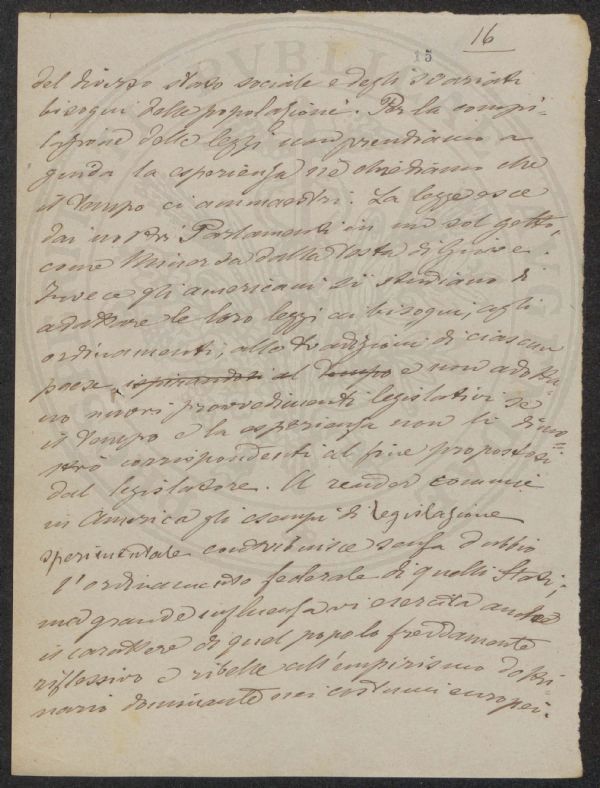 15 16
del diverso stato sociale e degli svariati
bisogni delle popolazioni. Per la compi-
lazione delle leggi non prendiamo a
guida la esperienza nè chiediamo che
il tempo ci ammaestri. La legge esce
dai nostri Parlamenti in un sol getto,
come Minerva dalla testa di Giove.
Invece gli americani si studiano di
adattare le loro leggi ai bisogni, agli
ordinamenti, alle tradizioni di ciascun
paese ispirandosi al tempo e non adotta-
no nuovi provvedimenti legislativi se
il tempo e la esperienza non li dimo=
strò corrispondenti al fine propostosi
dal legislatore. A render comuni
in America gli esempi di legislazione
sperimentale contribuisce senza dubbio
l'ordinamento federale di quelli Stati,
ma grande influenza vi esercita anche
il carattere di quel popolo freddamente
riflessivo e ribelle all'empirismo dottri-
nario dominante nei costumi europei.